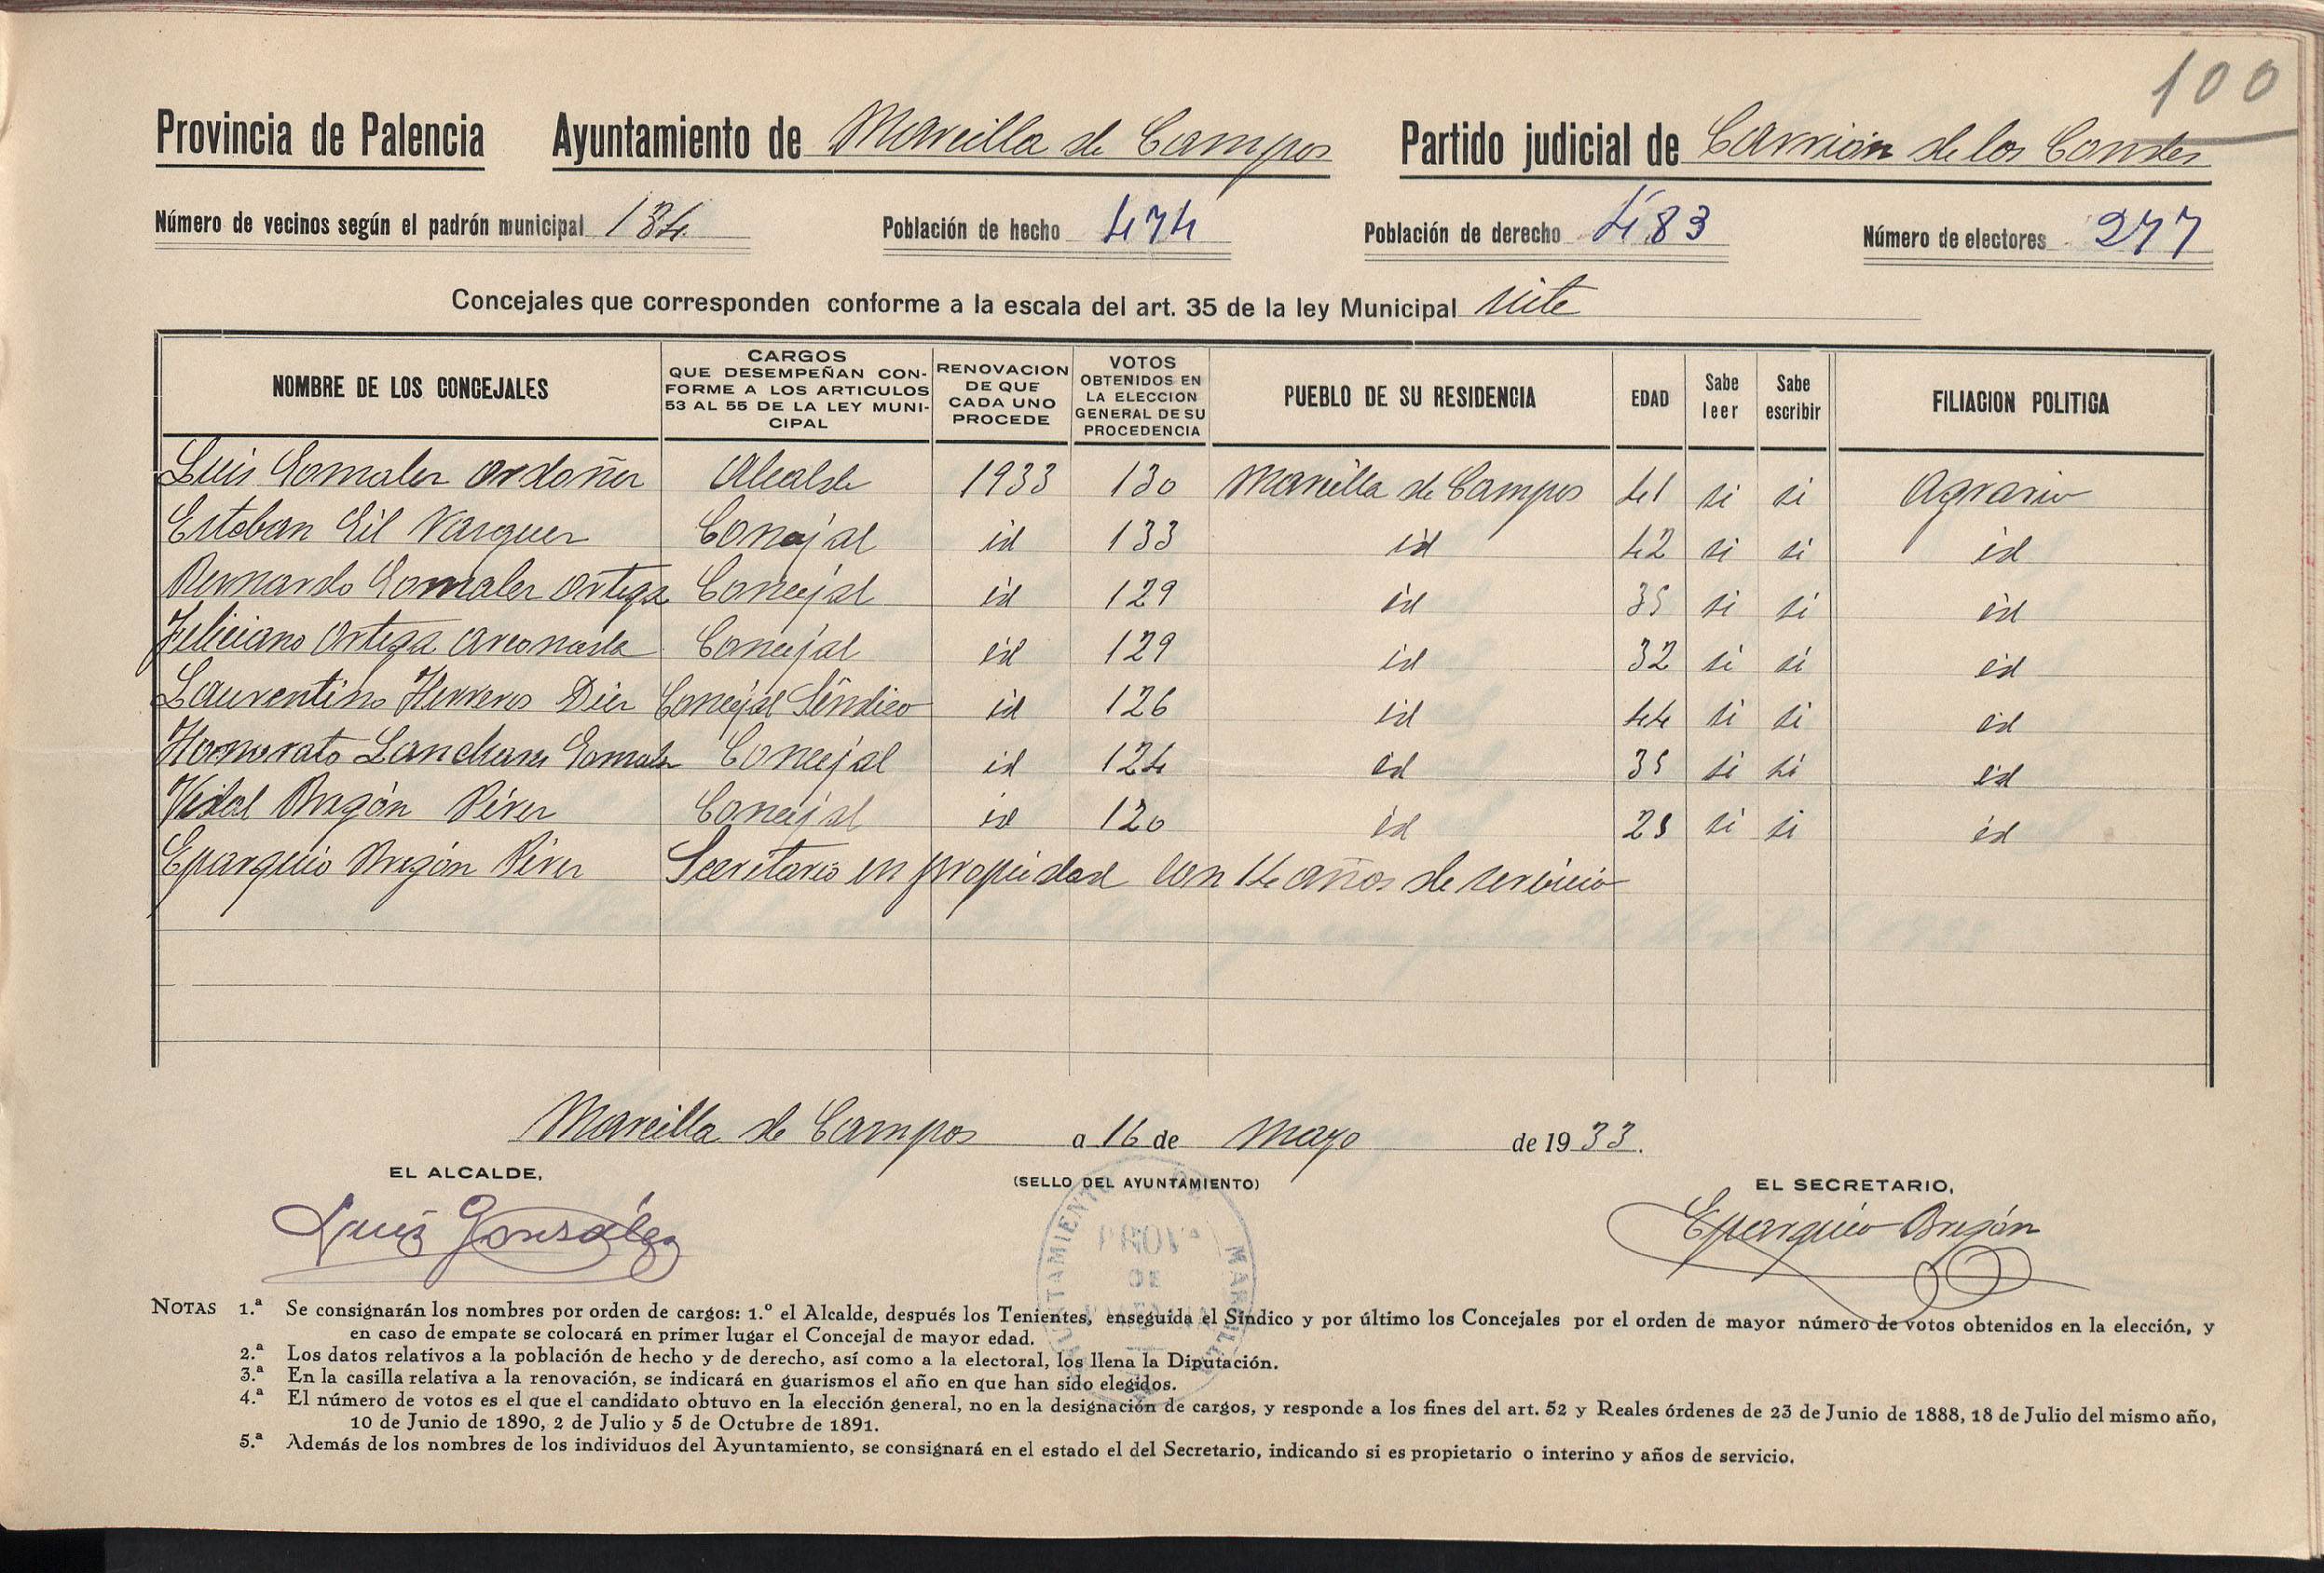 100
Provincia de Palencia Ayuntamiento de Marcilla de Campos Partido judicial de Carrión de los Condes
Número de vecinos según el padrón municipal 134 Población de hecho 474 Población de derecho 483 Número de electores 277
Concejales que corresponden conforme a la escala del art. 35 de la ley Municipal siete
NOMBRE DE LOS CONCEJALES CARGOS QUE DESEMPEÑAN CONFORME A LOS ARTICULOS 53 AL 55 DE LA LEY MUNICIPAL RENOVACION DE QUE CADA UNO PROCEDE VOTOS OBTENIDOS EN LA ELECCION GENERAL DE SU PROCEDENCIA PUEBLO DE SU RESIDENCIA EDAD Sabe leer Sabe escribir FILIACION POLITICA
Luis Gonzalez Ordoñez Alcalde 1933 130 Marcilla de Campos 41 si si Agrario
Esteban Gil Vazquez Concejal id 133 id 42 si si id
Bernardo Gonzalez Ortega Concejal id 129 id 35 si si id
Feliciano Ortega Arconada Concejal id 129 id 32 si si id
Laurentino Herreros Diez Concejal Síndico id 126 id 44 si si id
Honorato Lanchares Gonzalez Concejal id 124 id 35 si si id
Vidal Bregón Pérez Concejal id 120 id 25 si si id
Eparquio Bregón Pérez Secretario en propiedad con 14 años de servicio
Marcilla de Campos a 16 de Mayo de 1933.
EL ALCALDE, (SELLO DEL AYUNTAMIENTO) EL SECRETARIO,
Luis González Eparquio Bregón
PROVª
DE
NOTAS 1.ª Se consignarán los nombres por orden de cargos: 1.º el Alcalde, después los Tenientes, enseguida el Síndico y por último los Concejales por el orden de mayor número de votos obtenidos en la elección, y
en caso de empate se colocará en primer lugar el Concejal de mayor edad.
2.ª Los datos relativos a la población de hecho y de derecho, así como a la electoral, los llena la Diputación.
3.ª En la casilla relativa a la renovación, se indicará en guarismos el año en que han sido elegidos.
4.ª El número de votos es el que el candidato obtuvo en la elección general, no en la designación de cargos, y responde a los fines del art. 52 y Reales órdenes de 23 de Junio de 1888, 18 de Julio del mismo año,
10 de Junio de 1890, 2 de Julio y 5 de Octubre de 1891.
5.ª Además de los nombres de los individuos del Ayuntamiento, se consignará en el estado el del Secretario, indicando si es propietario o interino y años de servicio.